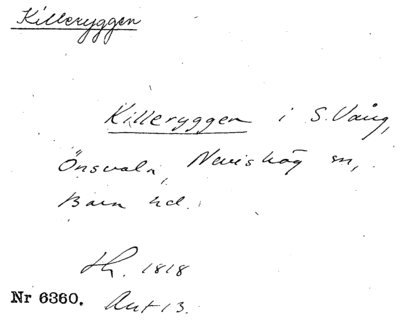 Killeryggen
Killeryggen i S. Vång,
Önsvala, Nevishög sn,
Bara hd.
Hs. 1818
Nr 6360. Akt 13.